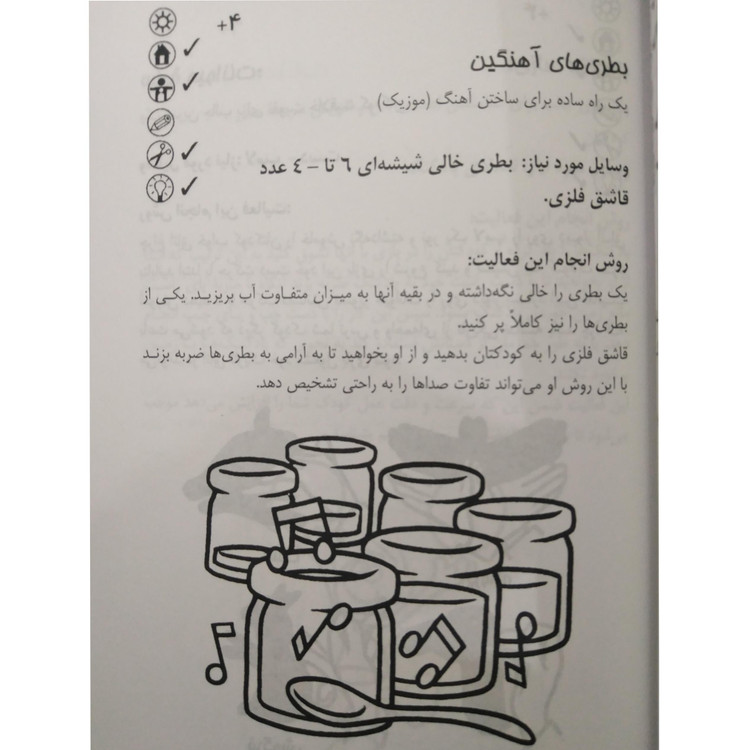 +۴
بطری‌های آهنگین
یک راه ساده برای ساختن آهنگ (موزیک)
وسایل مورد نیاز: بطری خالی شیشه‌ای ٦ تا – ٤ عدد
قاشق فلزی.
روش انجام این فعالیت:
یک بطری را خالی نگه‌داشته و در بقیه آنها به میزان متفاوت آب بریزید. یکی از
بطری‌ها را نیز کاملاً پر کنید.
قاشق فلزی را به کودکتان بدهید و از او بخواهید تا به آرامی به بطری‌ها ضربه بزند
با این روش او می‌تواند تفاوت صداها را به راحتی تشخیص دهد.